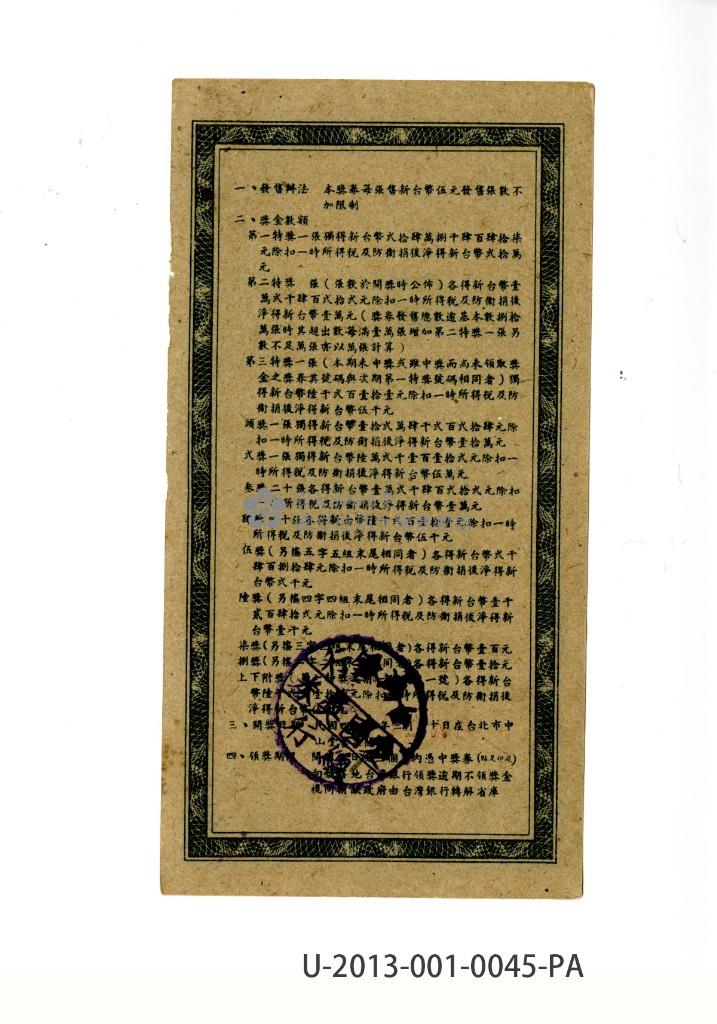 一、發售辦法　本獎券每張售新台幣伍元發售張數不
加限制
二、獎金數額
第一特獎一張獨得新台幣弍拾肆萬捌千肆百肆拾柒
元除扣一時所得稅及防衛捐後淨得新台幣弍拾萬
元
第二特獎　張（張數於開獎時公佈）各得新台幣壹
萬弍千肆百弍拾弍元除扣一時所得稅及防衛捐後
淨得新台幣壹萬元（獎券發售總數逾基本數捌拾
萬張時其超出數每滿壹萬張增加第二特獎一張另
數不足萬張亦以萬張計算）
第三特獎一張（本期未中獎或雖中獎而尚未領取獎
金之獎券其號碼與次期第一特獎號碼相同者）獨
得新台幣陸千弍百壹拾壹元除扣一時所得稅及防
衛捐後淨得新台幣伍千元
頭獎一張獨得新台幣壹拾弍萬肆千弍百弍拾肆元除
扣一時所得稅及防衛捐後淨得新台幣壹拾萬元
弍獎一張獨得新台幣陸萬弍千壹百壹拾弍元除扣一
時所得稅及防衛捐後淨得新台幣伍萬元
叁獎二十張各得新台幣壹萬弍千肆百弍拾弍元除扣
所得稅及防衛捐後淨得新台幣壹萬元
十張各得新台幣陸千弍百壹拾壹元除扣一時
所得稅及防衛捐後淨得新台幣伍千元
伍獎（另搖五字五組末尾相同者）各得新台幣弍千
肆百捌拾肆元除扣一時所得稅及防衛捐後淨得新
台幣弍千元
陸獎（另搖四字四組末尾相同者）各得新台幣壹千
貳百肆拾弍元除扣一時所得稅及防衛捐後淨得新
台幣壹千元
柒獎（另搖三字　末尾相同者）各得新台幣壹百元
捌獎（另搖　字　同　）各得新台幣壹拾元
上下附獎（　一號）各得新台
幣陸千　壹拾　元除扣　時所得稅及防衛捐後
淨得新台幣
三、開獎日　民國　年三　十日在台北市中
山堂
四、領獎期　開　日　內憑中獎券
向　地台　銀行領獎逾期不領獎金
視同　獻政府由台灣銀行轉解省庫
U-2013-001-0045-PA